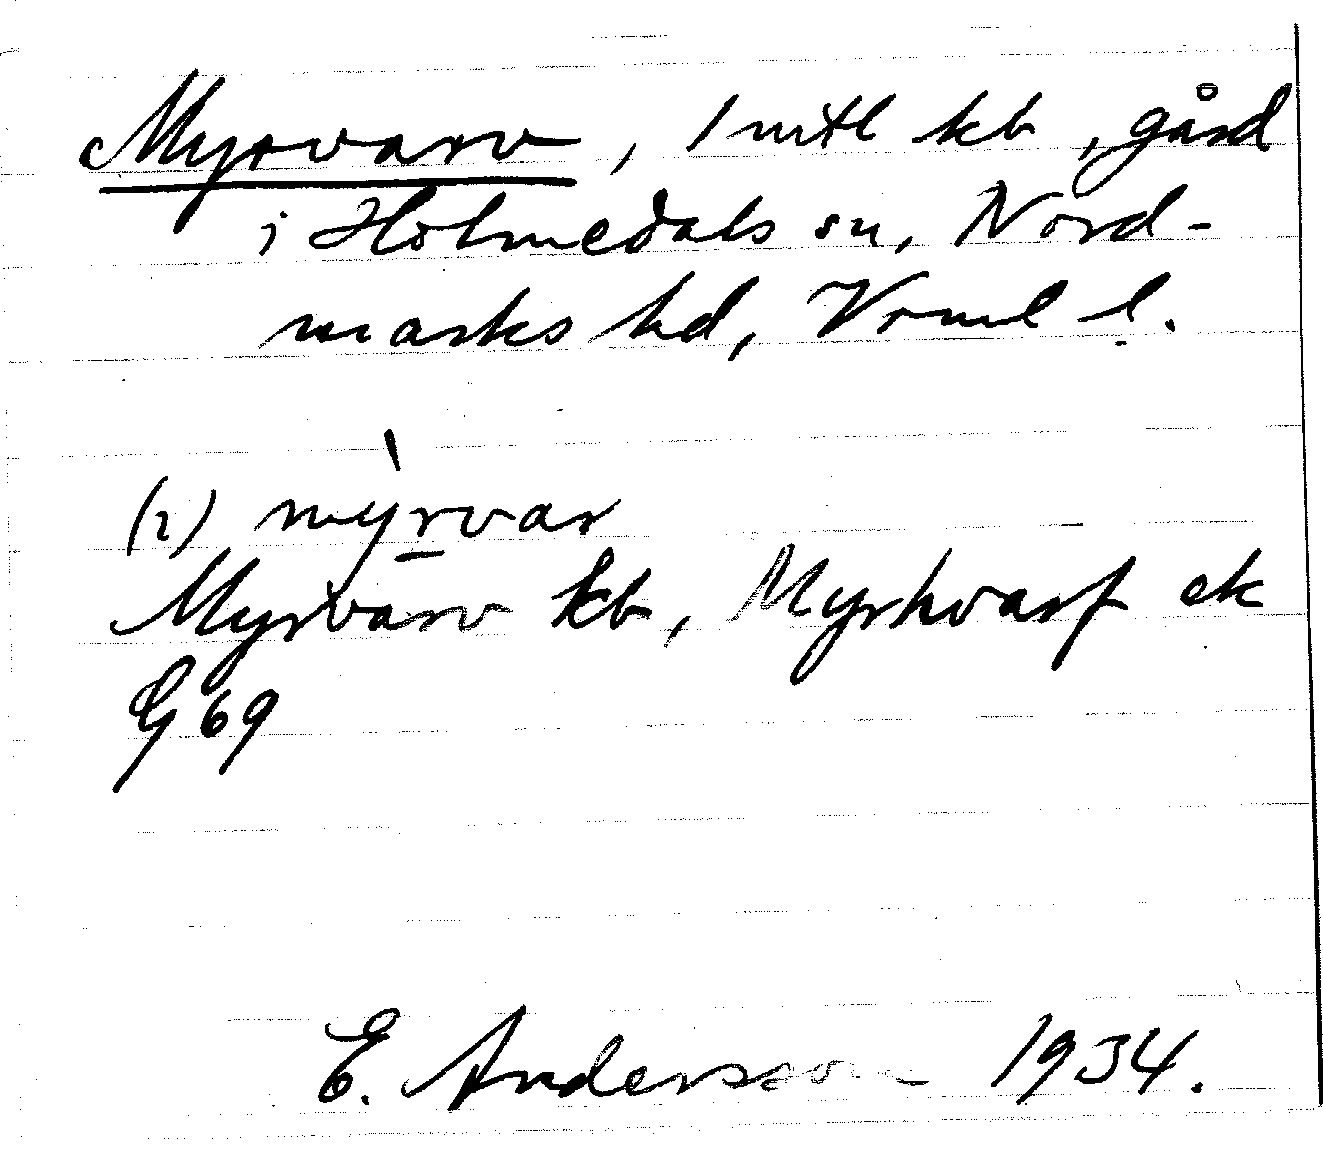 Myrvarv, 1 mtl kb, gård
i Holmedals sn, Nord-
marks hd, Vrml l.
(2) mỳ̱rvar
Myrvarv kb, Myrhvarf ek
G 69
E. Andersson 1934.